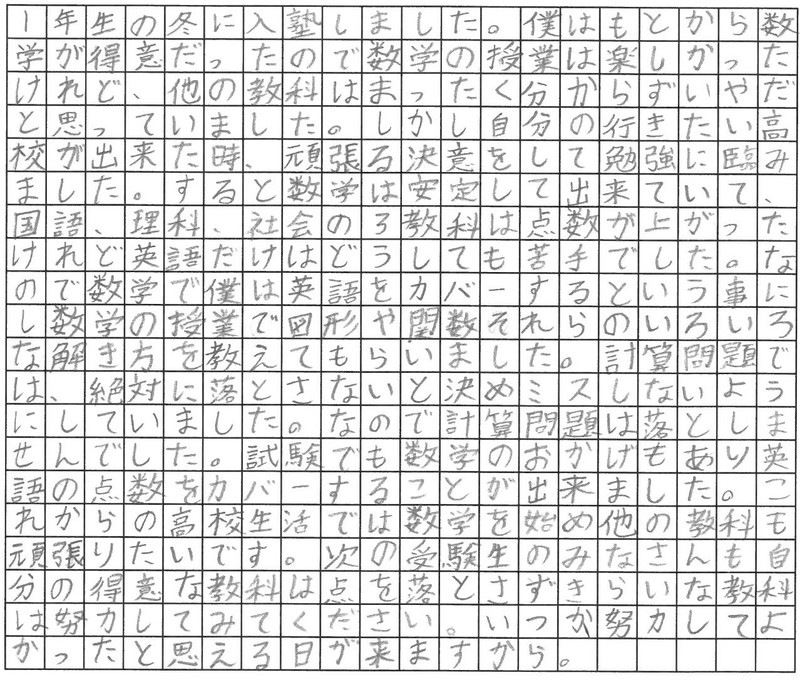 1年生の冬に入塾しました。僕はもとから数
学が得意だったので数学の授業は楽しかった
けれど、他の教科はまったく分からずいやだ
と思っていました。しかし自分の行きたい高
校が出来た時、頑張る決意をして勉強に臨み
ました。すると数学は安定して出来ていて、
国語、理科、社会の3教科は点数が上がった
けれど英語だけはどうしても苦手でした。な
ので数学で僕は英語をカバーするという事に
し数学の授業で図形や関数それらのいろいろ
な解き方を教えてもらいました。計算問題で
は、絶対に落とさないと決めミスしないよう
にしていました。なので計算問題は落としま
せんでした。試験でも数学のおかげもあり英
語の点数をカバーすることが出来ました。こ
れからの高校生活では数学を始め他の教科も
頑張りたいです。次の受験生のみなさんも自
分の得意な教科は点を落とさずきらいな教科
は努力してみてください。いつか努力してよ
かったと思える日が来ますから。